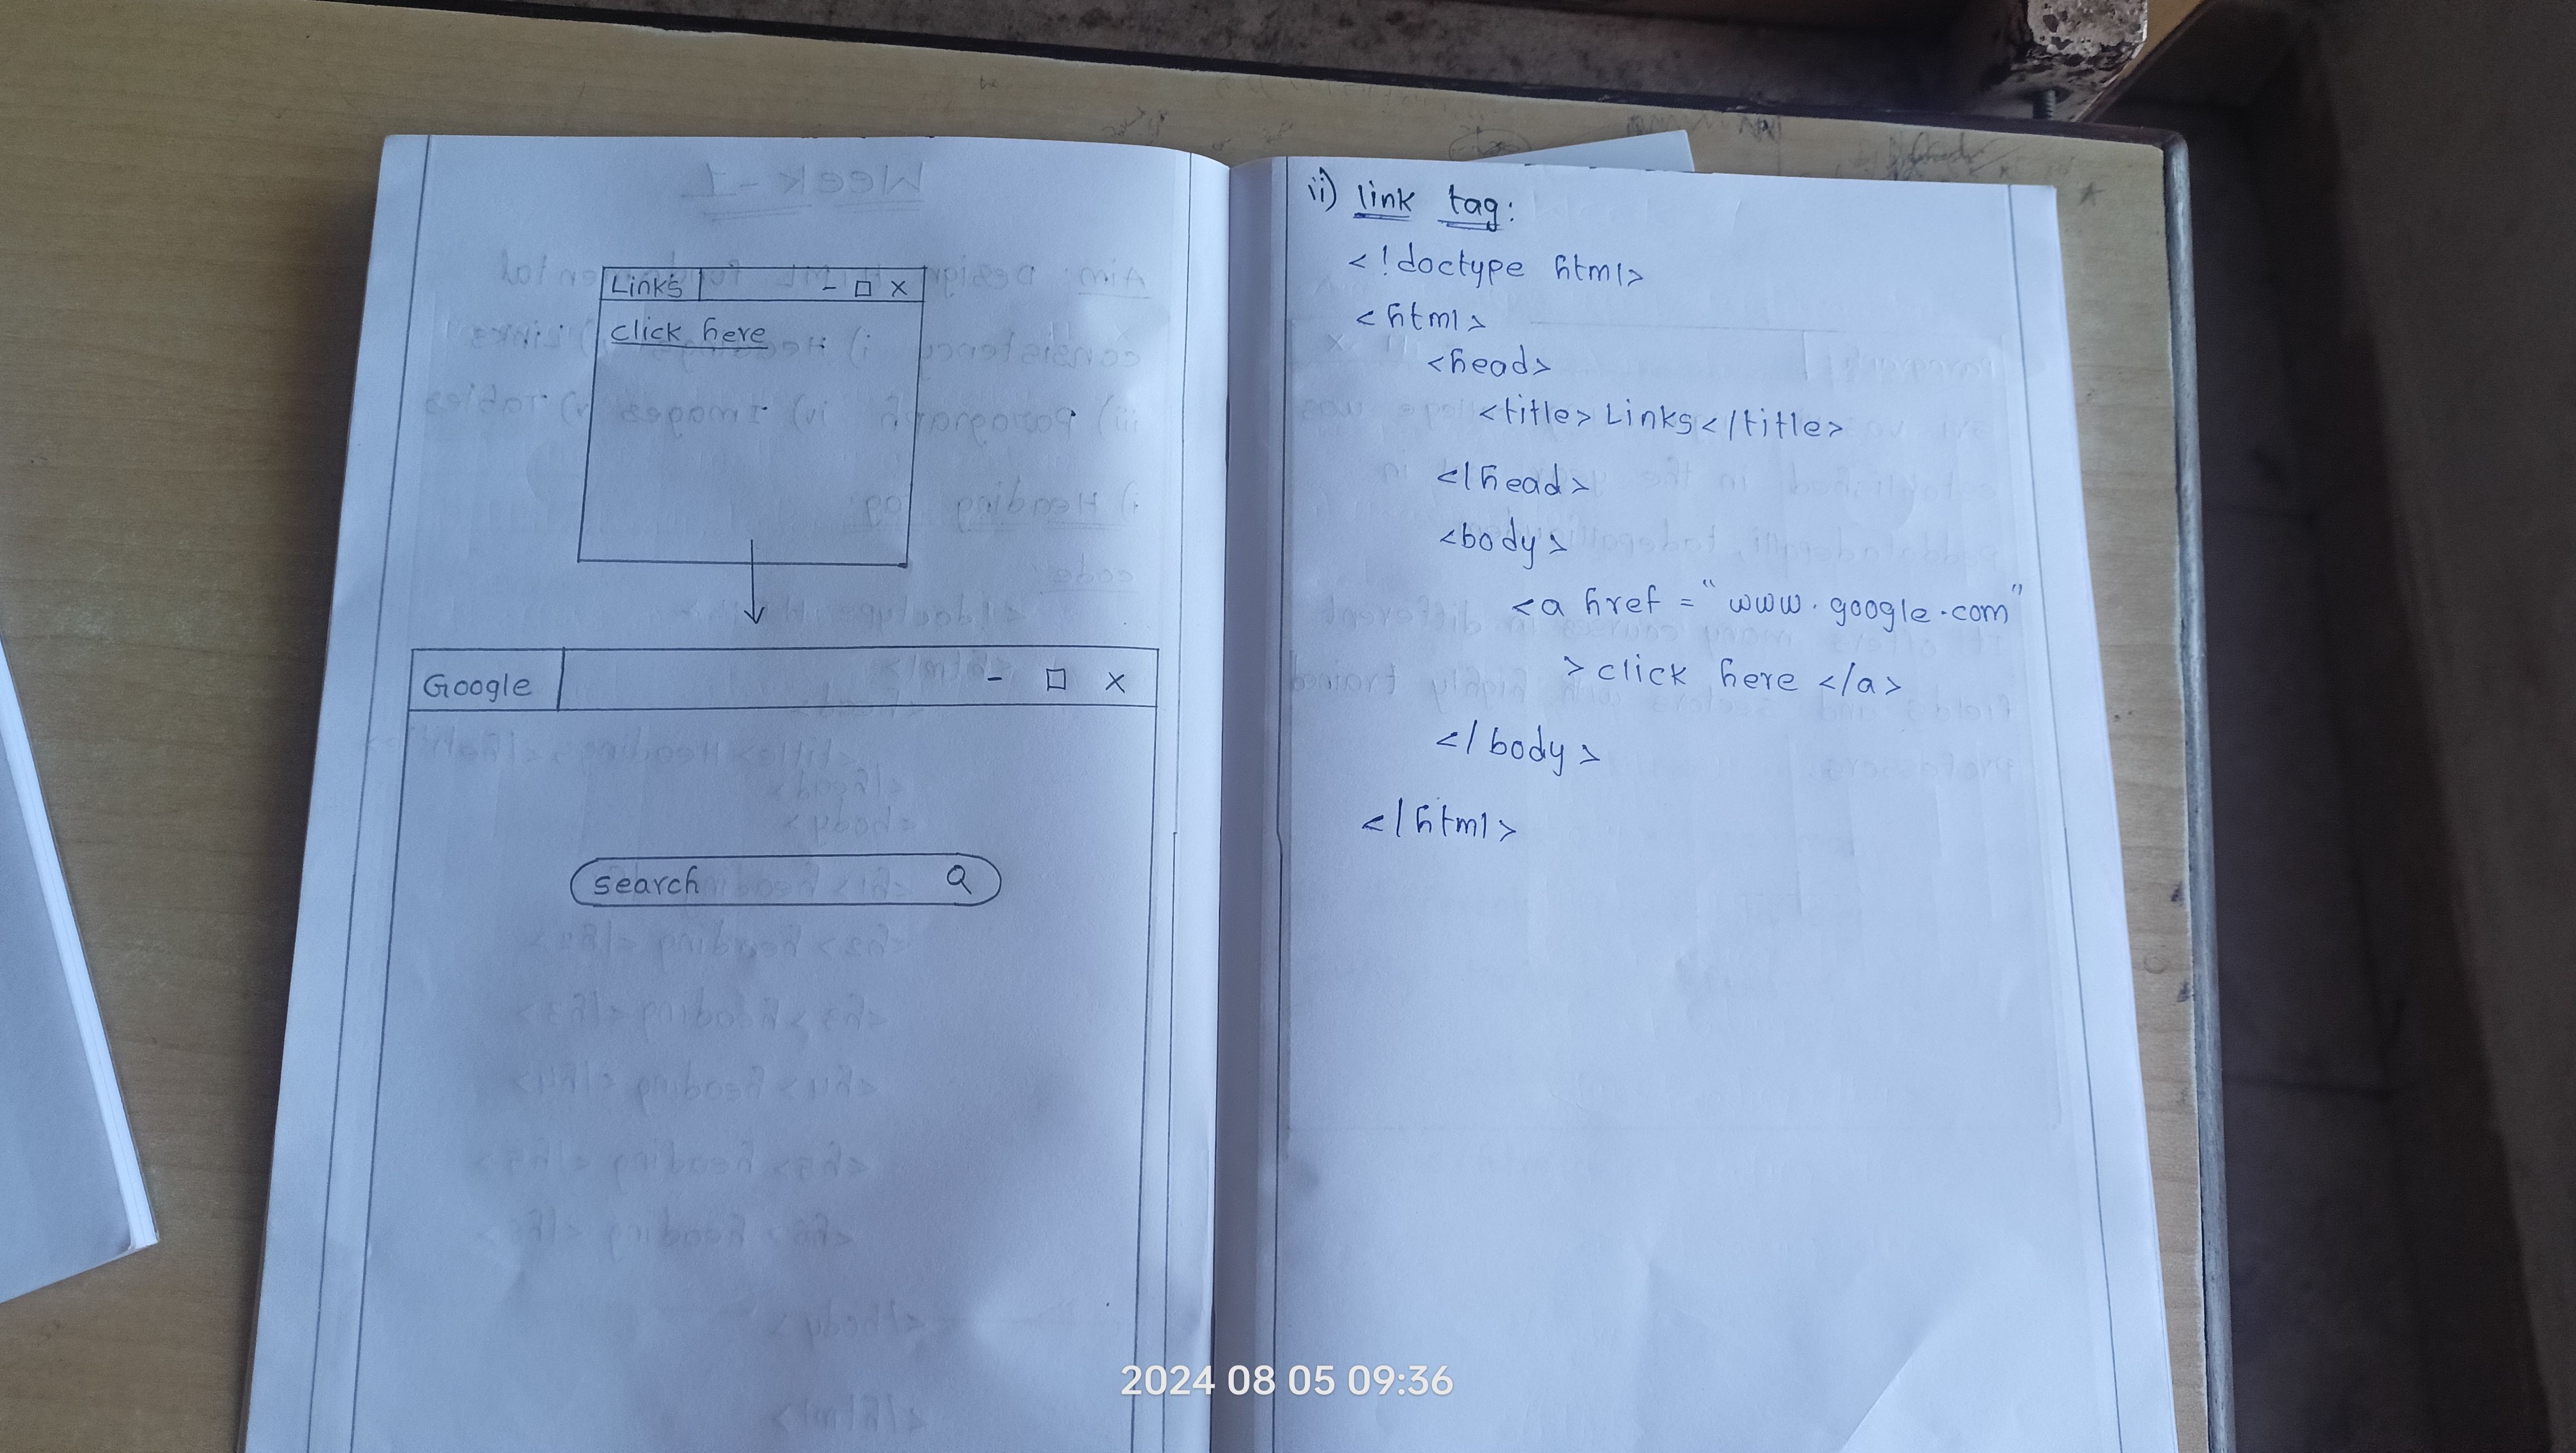 Links - □ X
click here
Google - □ X
search
ii) link tag:
<!doctype html>
<html>
<head>
<title>Links</title>
</head>
<body>
<a href = "www.google.com"
>click here </a>
</body>
</html>
2024 08 05 09:36